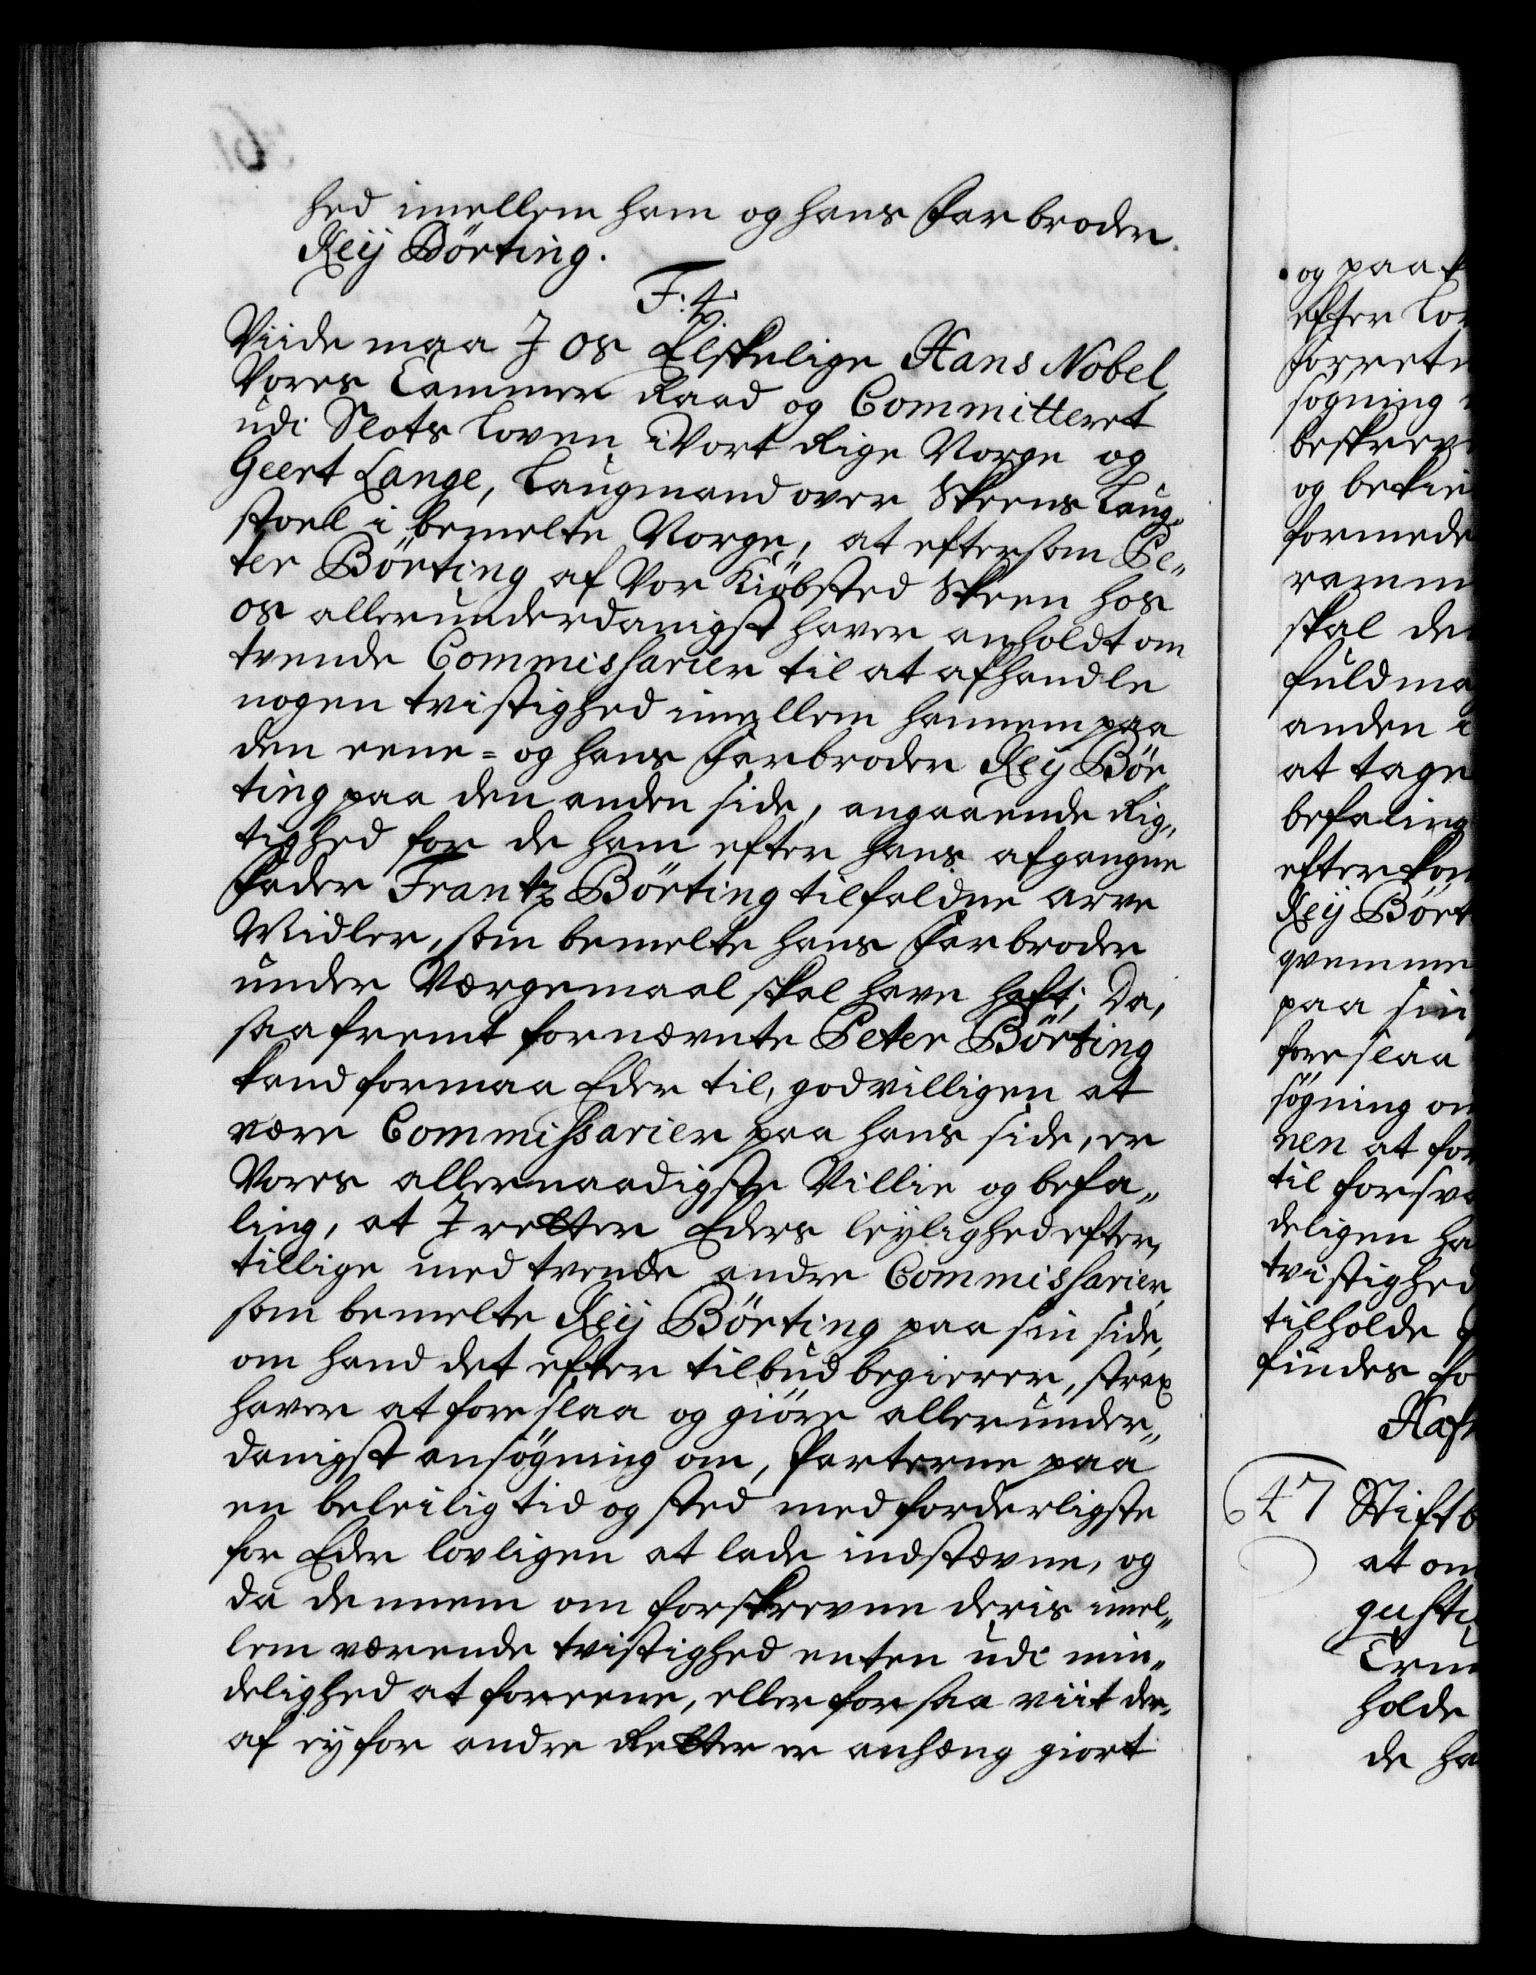 hed imellem ham og hans Farbroder
Keij Börting.
F: 4.
Viide maa J os Elskelige Hans Nobel
Vores Cammer Raad og Committeret
udi Slots Loven i Vort Rige Norge og
Geert Lange, Laugmand over Skeens Laug„
stoel i bemelte Norge, at eftersom Pe„
ter Börting af Vor Kiöbsted Skeen hos
os allerunderdanigst haver anholdt om
tvende Commissarier til at afhandle
nogen tvistighed imellem hannem paa
den eene= og hans Farbroder Keij Bör„
ting paa den anden side, angaaende Rig„
tighed for de ham efter hans afgangne
Fader Frantz Börting tilfaldne arve
Midler, som bemelte hans Farbroder
under Værgemaal skal have haft; Da,
saafremt fornævnte Peter Börting
kand formaa Eder til, godvilligen at
være Commissarier paa hans side, er
Vores allernaadigste Villie og befa„
ling, at J retter Eders leylighed efter,
tillige med tvende andre Commissarier,
som bemelte Keij Börting paa sin side,
om hand det efter tilbud begierer, strax
haver at foreslaa og giöre allerunder„
danigst ansögning om, Parterne paa
en beleilig tid og sted med forderligste
for Eder lovligen at lade indstævne, og
da dennem om forskrevne deris imel„
lem værende tvistighed enten udi min„
delighed at foreene, eller for saa viit der„
af ey for andre Retter er anhæng giort
og paa
efter Lo
forret
sögning
beskrev
og bekie
formede
ramm
skal de
fuldma
anden
at tage
befaling
efterkom
Keij Bört
qvemme
paa sin
foreslaa
sögning om
nen at for
til forsva
deligen ha
tvistighed
tilholde
findes fo
Haf
47 Stiftb
at om
gusti
Eru
holde
de ha